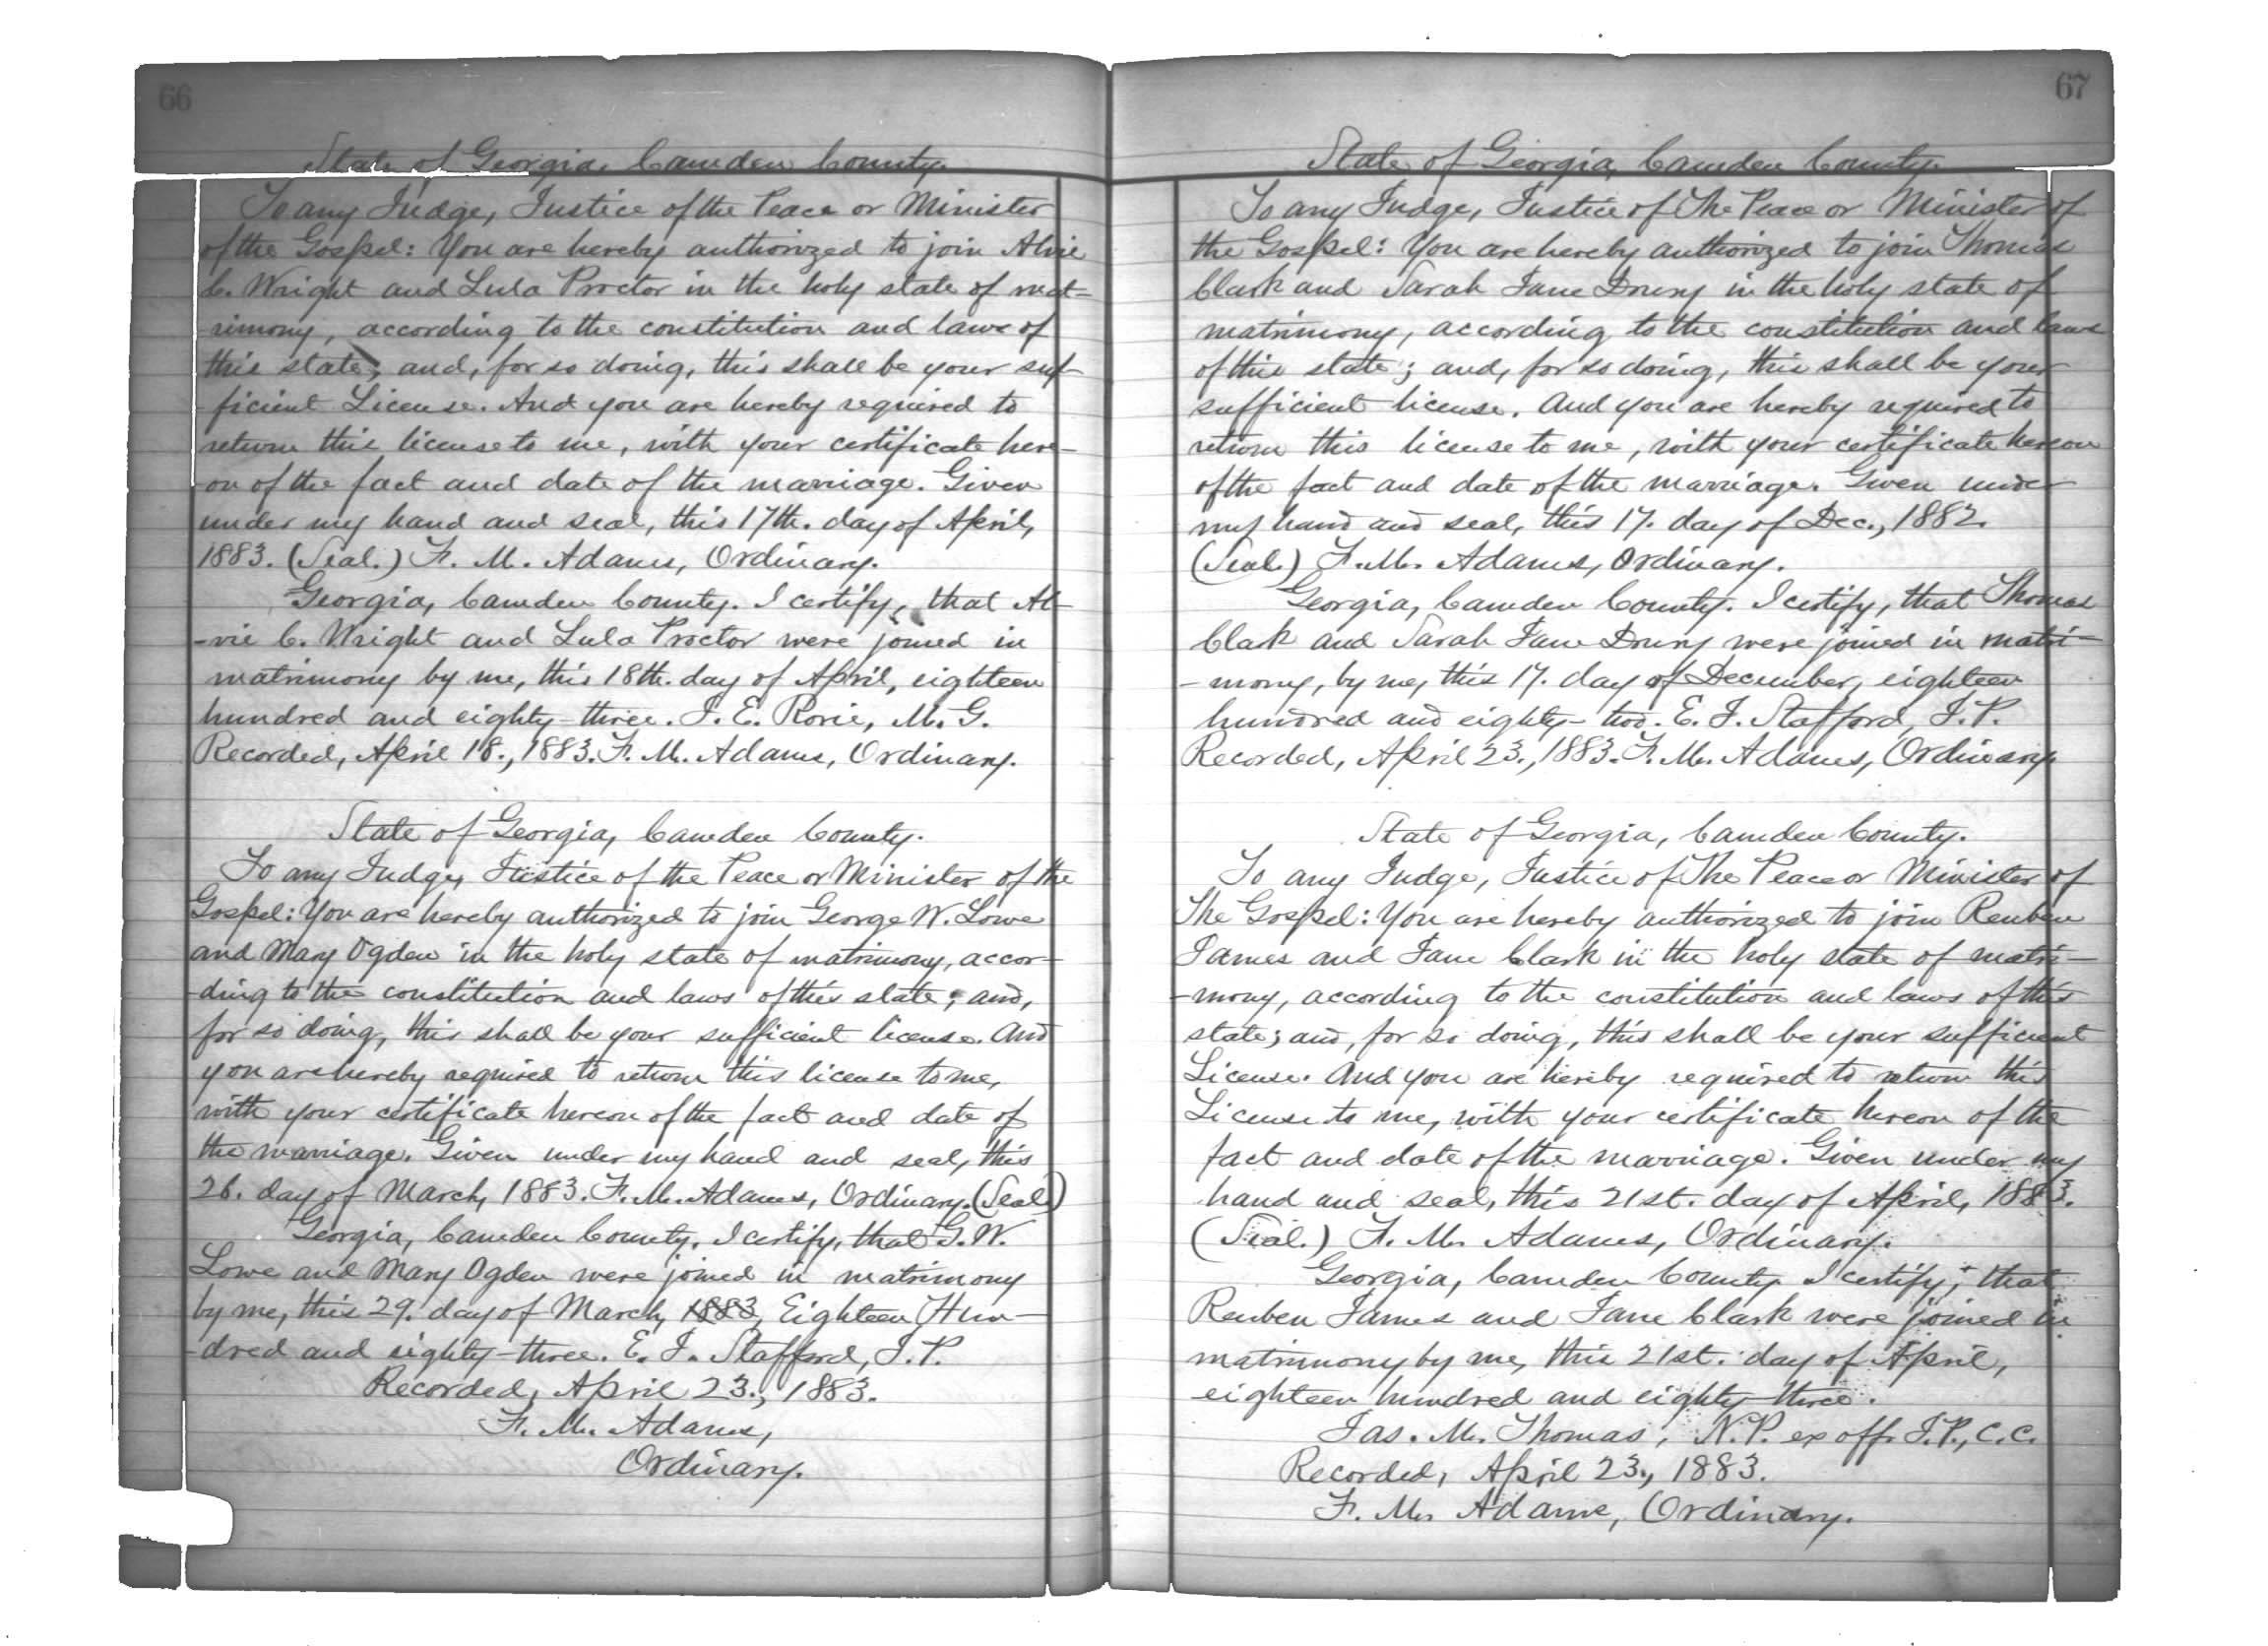 66
State of Georgia, Camden County.
To any Judge, Justice of the Peace or Minister
of the Gospel: You are hereby authorized to join Alvie
C. Wright and Lula Proctor in the holy state of mat-
-rimony, according to the constitution and laws of
this state; and, for so doing, this shall be your suf-
-ficient License. And you are hereby required to
return this license to me, with your certificate here-
-on of the fact and date of the marriage. Given
under my hand and seal, this 17th. day of April,
1883. (Seal.) F. M. Adams, Ordinary.
Georgia, Camden County. I certify, that Al-
-vie C. Wright and Lula Proctor were joined in
matrimony by me, this 18th. day of April, eighteen
hundred and eighty-three. J. E. Rorie, M. G.
Recorded, April 18., 1883. F. M. Adams, Ordinary.
State of Georgia, Camden County.
To any Judge, Justice of the Peace or Minister of the
Gospel: You are hereby authorized to join George W. Lowe
and Mary Ogden in the holy state of matrimony, accor-
-ding to the constitution and laws of this state; and,
for so doing, this shall be your sufficient license. And
you are hereby required to return this license to me,
with your certificate hereon of the fact and date of
the marriage. Given under my hand and seal, this
26. day of March, 1883. F. M. Adams, Ordinary. (Seal)
Georgia, Camden County. I certify, that G. W.
Lowe and Mary Ogden were joined in matrimony
by me, this 29. day of March, 1883, Eighteen Hun-
-dred and eighty-three. E. J. Stafford, J. P.
Recorded, April 23., 1883.
F. M. Adams,
Ordinary.
67
State of Georgia, Camden County.
To any Judge, Justice of The Peace or Minister of
the Gospel: You are hereby authorized to join Thomas
Clark and Sarah Jane Drury in the holy state of
matrimony, according to the constitution and laws
of this state; and, for so doing, this shall be your
sufficient license. And you are hereby required to
return this license to me, with your certificate hereon
of the fact and date of the marriage. Given under
my hand and seal, this 17. day of Dec., 1882.
(Seal.) F. M. Adams, Ordinary.
Georgia, Camden County. I certify, that Thomas
Clark and Sarah Jane Drury were joined in matri-
-mony, by me, this 17. day of December, eighteen
hundred and eighty-two. E. J. Stafford, J. P.
Recorded, April 23., 1883. F. M. Adams, Ordinary.
State of Georgia, Camden County.
To any Judge, Justice of The Peace or Minister of
The Gospel: You are hereby authorized to join Reuben
James and Jane Clark in the holy state of matri-
-mony, according to the constitution and laws of this
state; and, for so doing, this shall be your sufficient
License. And you are hereby required to return this
License to me, with your certificate hereon of the
fact and date of the marriage. Given under my
hand and seal, this 21st. day of April, 1883.
(Seal.) F. M. Adams, Ordinary.
Georgia, Camden County. I certify, that
Reuben James and Jane Clark were joined in
matrimony by me, this 21st. day of April,
eighteen hundred and eighty-three.
Jas. M. Thomas, N. P. ex off. J. P., C. C.
Recorded, April 23., 1883.
F. M. Adams, Ordinary.